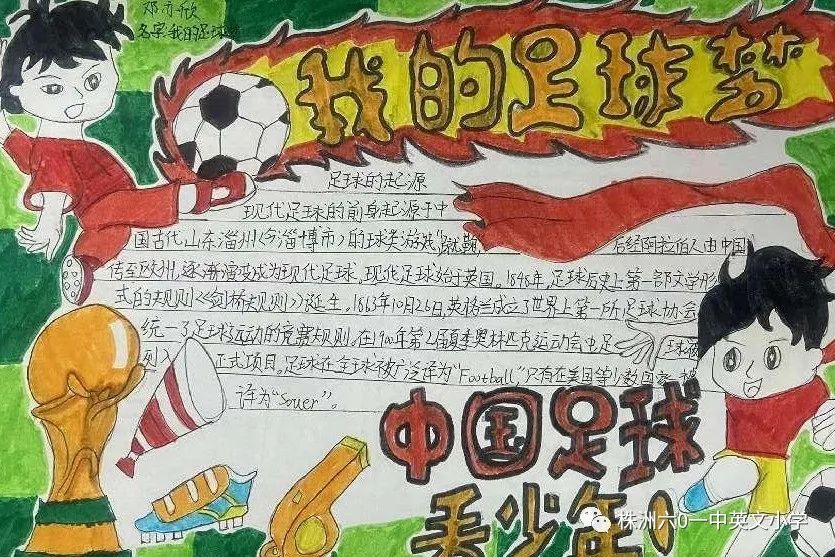 邓亦欣
名字:我的足球
我的足球梦
足球的起源
现代足球的前身起源于中
国古代山东淄州《今淄博市》的球类游戏"蹴鞠 后经阿拉伯人由中国
传至欧州,逐渐演变成为现代足球。现代足球始于英国。1848年,足球历史上第一部文学形
式的规则《剑桥规则》诞生。1863年10月26日,英格兰成立了世界上第一所足球协会
统一了足球运动的竞赛规则。在1900年第2届夏季奥林匹克运动会也足 球被
列入 正式项目。足球在全球被广泛译为"Football",只有在美国等少数国家被
译为"souer"。
中国足球
美少年!
株洲六0一中英文小学